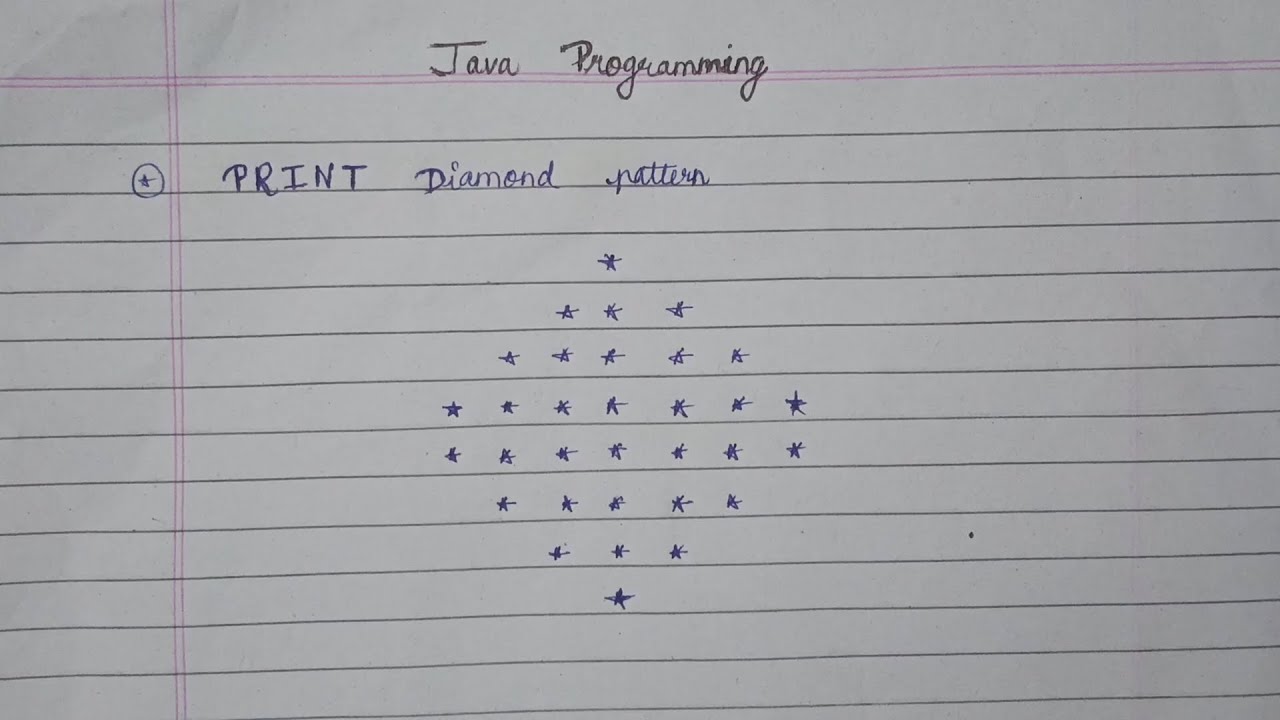 Java Programming
⍟ PRINT Diamond pattern
*
* * *
* * * * *
* * * * * * *
* * * * * * *
* * * * *
* * *
*